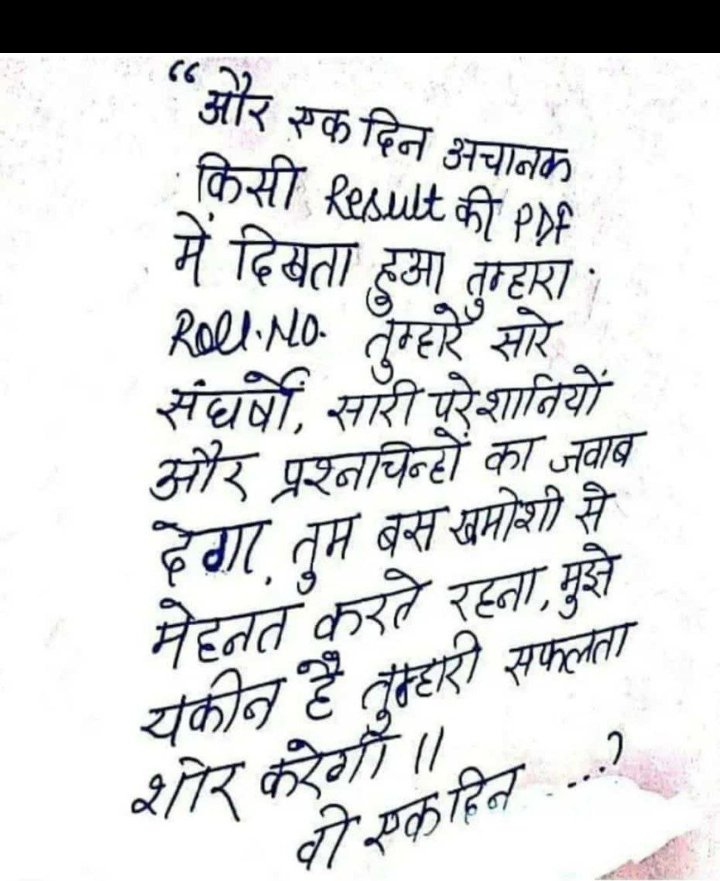 “और एक दिन अचानक
किसी Result की PDF
में दिखता हुआ तुम्हारा
Roll.No. तुम्हारे सारे
संघर्षों, सारी परेशानियों
और प्रश्नचिन्हों का जवाब
देगा, तुम बस खमोशी से
मेहनत करते रहना, मुझे
यकीन है तुम्हारी सफलता
शोर करेगी ||
वो एक दिन ....?